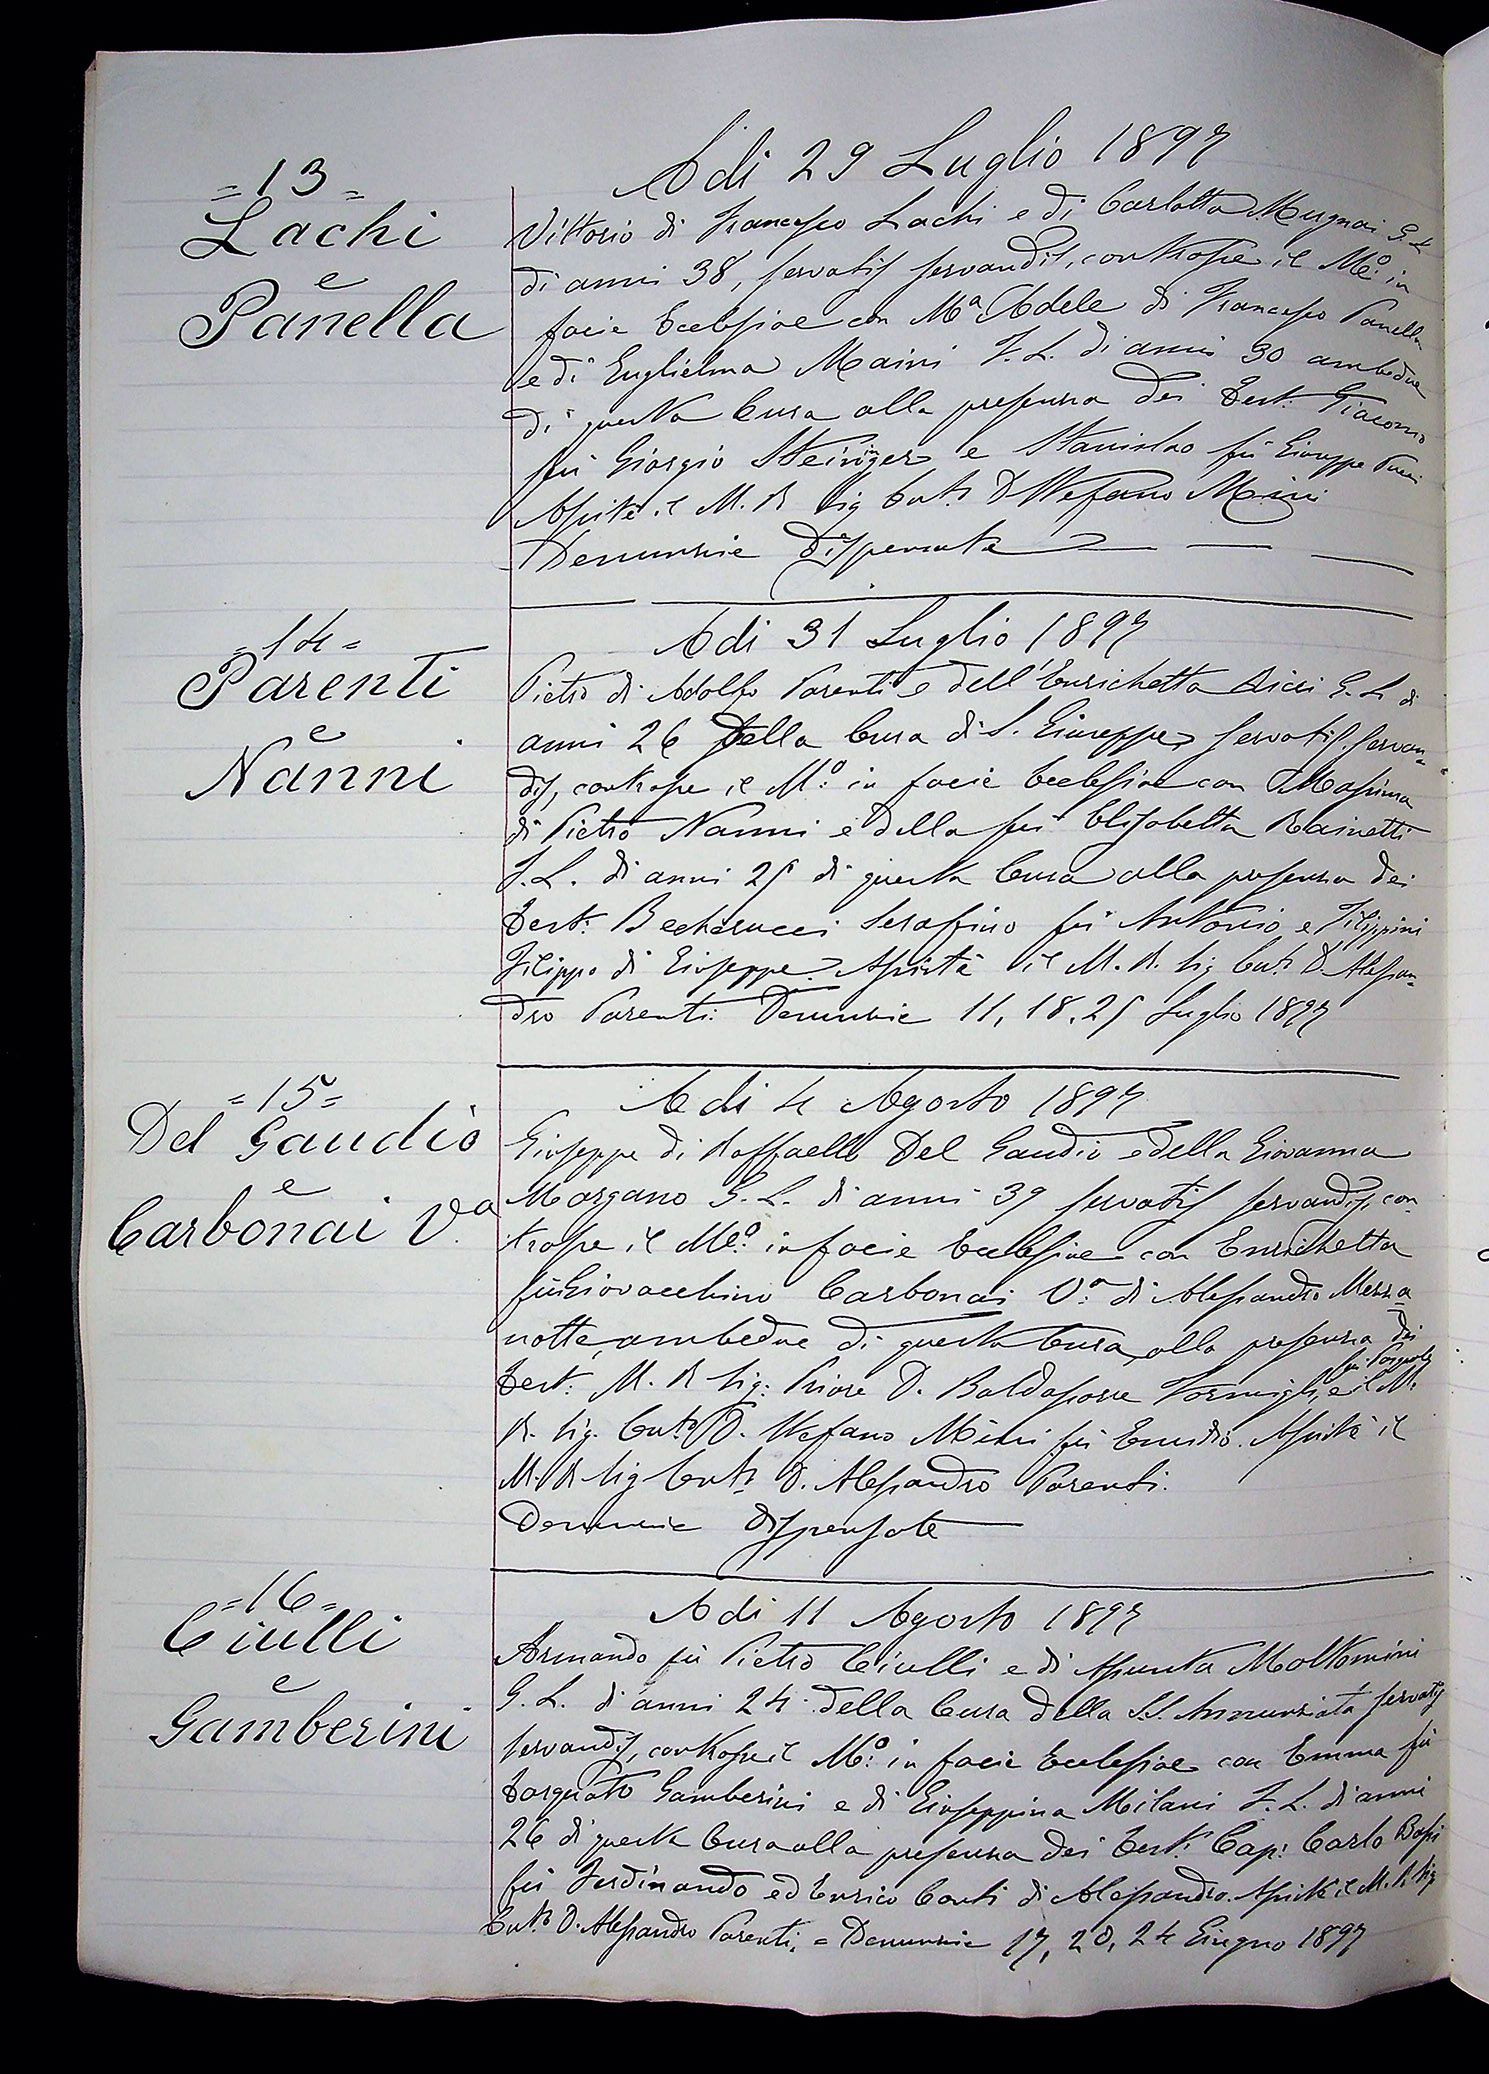 =13=
Lachi
e
Panella
A di 29 Luglio 1897
Vittorio di Francesco Lachi e di Carlotta Mugnai G. L.
di anni 38, servatis servandis, contrasse il Mo: in
facie Ecclesiae con Ma Adele di Francesco Panella
e di Guglielma Maini F. L. di anni 30 ambedue
di questa Cura alla presenza dei Test: Giacomo
fu Giorgio Steininger e Stanislao fu Giuseppe
Assistè il M. R. Sig. Cuto D Stefano Mini
Denunzie dispensate
=14=
Parenti
e
Nanni
A di 31 Luglio 1897
Pietro di Adolfo Parenti e dell'Enrichetta Ricci G. L. di
anni 26 della Cura di S. Giuseppe, servatis servan=
dis, contrasse il Mo: in facie Ecclesiae con Massima
di Pietro Nanni e della fu Elisabetta Rainetti
F. L. di anni 25 di questa Cura alla presenza dei
Test: Becherucci Serafino fu Antonio e Filippini
Filippo di Giuseppe. Assistè il M. R. Sig Cuto D. Alessan=
dro Parenti: Denunzie 11, 18, 25 Luglio 1897
=15=
Del Gaudio
e
Carbonai Va.
A di 4 Agosto 1897
Giuseppe di Raffaello Del Gaudio e della Giovanna
Morgano G. L. di anni 39 servatis servandis, con=
trasse il Mo: in facie Ecclesiae con Enrichetta
fu Giovacchino Carbonai Va: di Alessandro Mezza
notte, ambedue di questa Cura, alla presenza dei
Test: M. R Sig: Priore D. Baldassarre Formigli, fu Pasquale e il M.
R. Sig. Cuto D. Stefano Mini fu Emidio. Assistè il
M. R Sig Cuto D. Alessandro Parenti.
Denunzie dispensate
=16=
Ciulli
e
Gamberini
A di 11 Agosto 1897
Armando fu Pietro Ciulli e di Assunta Moltomini
G. L. d'anni 24 della Cura della SS. Annunziata servatis
servandis, contrasse il Mo: in facie Ecclesiae con Emma fu
Torquato Gamberini e di Giuseppina Milani F. L. di anni
26 di questa Cura alla presenza dei Test: Cap: Carlo Bossi
fu Ferdinando ed Enrico Conti di Alessandro. Assistè il M. R. Sig
Cuto D. Alessandro Parenti. = Denunzie 17, 20, 24 Giugno 1897